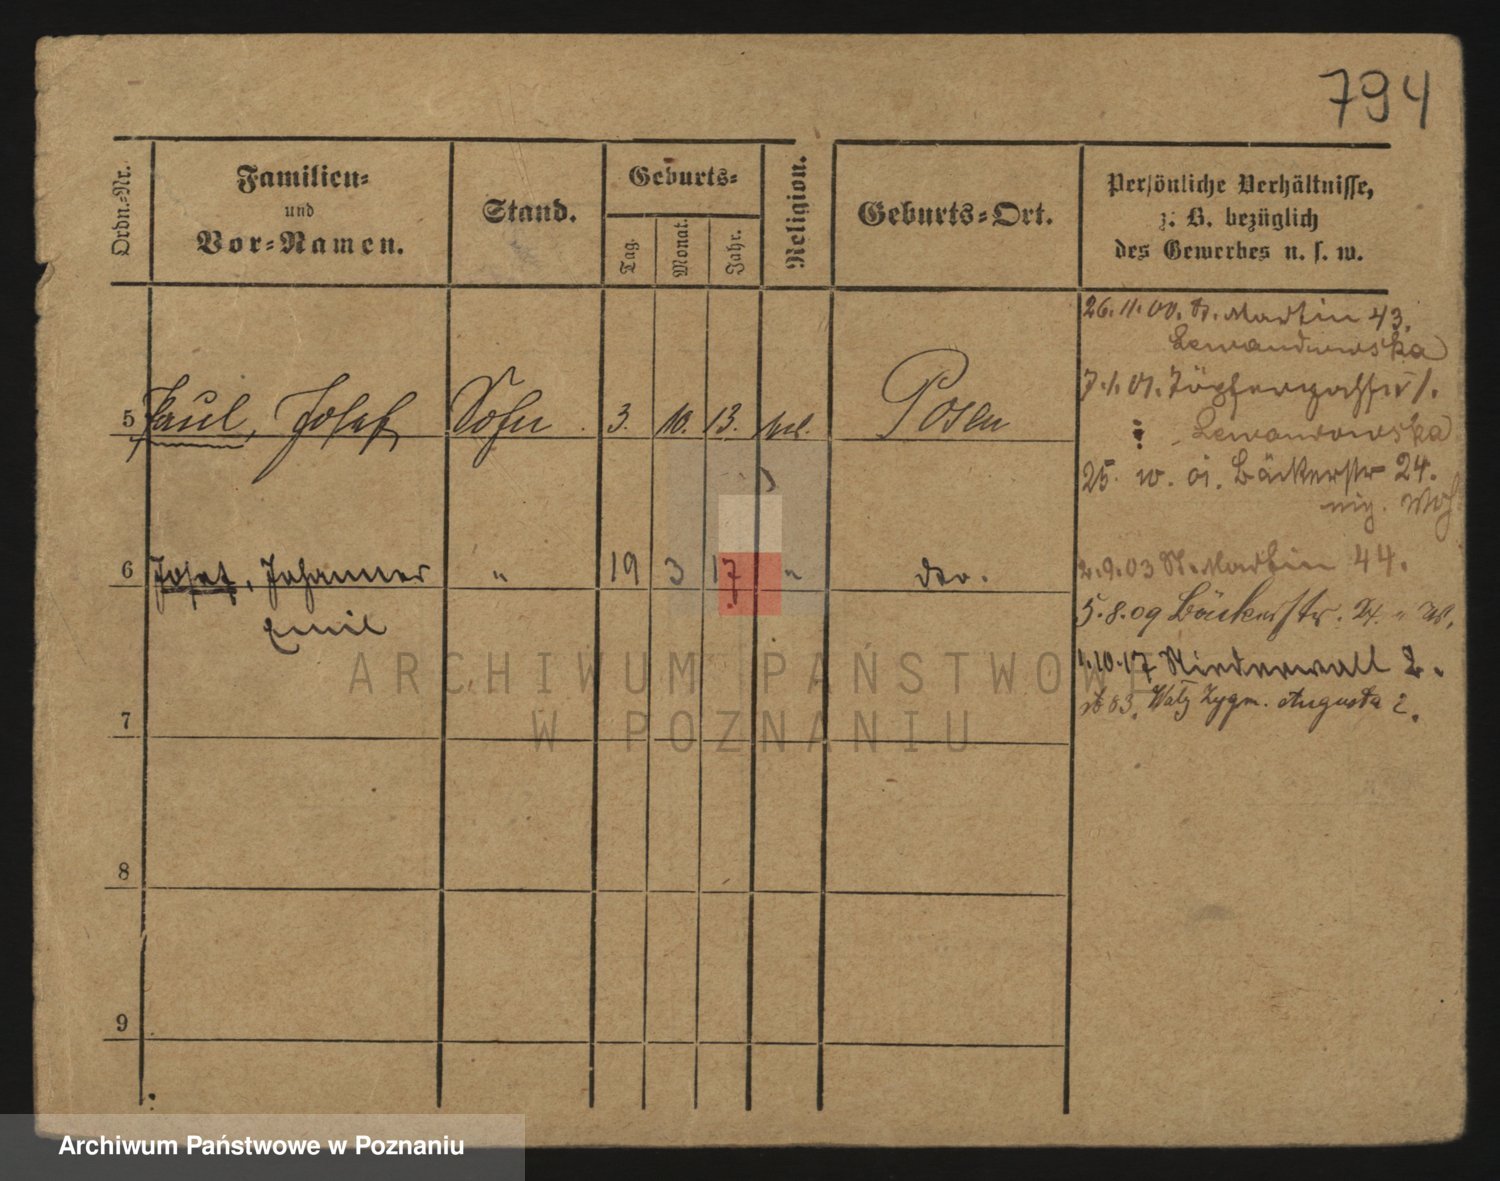 794
Ordn.-Nr.
Familien-
und
Vor-Namen.
Stand.
Geburts-
Tag.
Monat.
Jahr.
Religion.
Geburts-Ort.
Persönliche Verhältnisse,
z. B. bezüglich
des Gewerbes u. s. w.
26. 11. 00. St. Martin 43.
Lewandowska
7. 1. 01. Töpfergasse 1.
5 Paul, Josef Sohn 3. 10. 13. Posen
Lewandowska
25. 01. Bäckerstr 24.
6 Josef, Johannes " 19 3 17 " do.
Emil
2. 9. 03 St. Martin 44.
5. 8. 09 Bäckerstr.
1. 10. 17 Niederwall 2.
Wały Zygm. Augusta 2.
7
8
9
ARCHIWUM PAŃSTWOWE
W POZNANIU
Archiwum Państwowe w Poznaniu